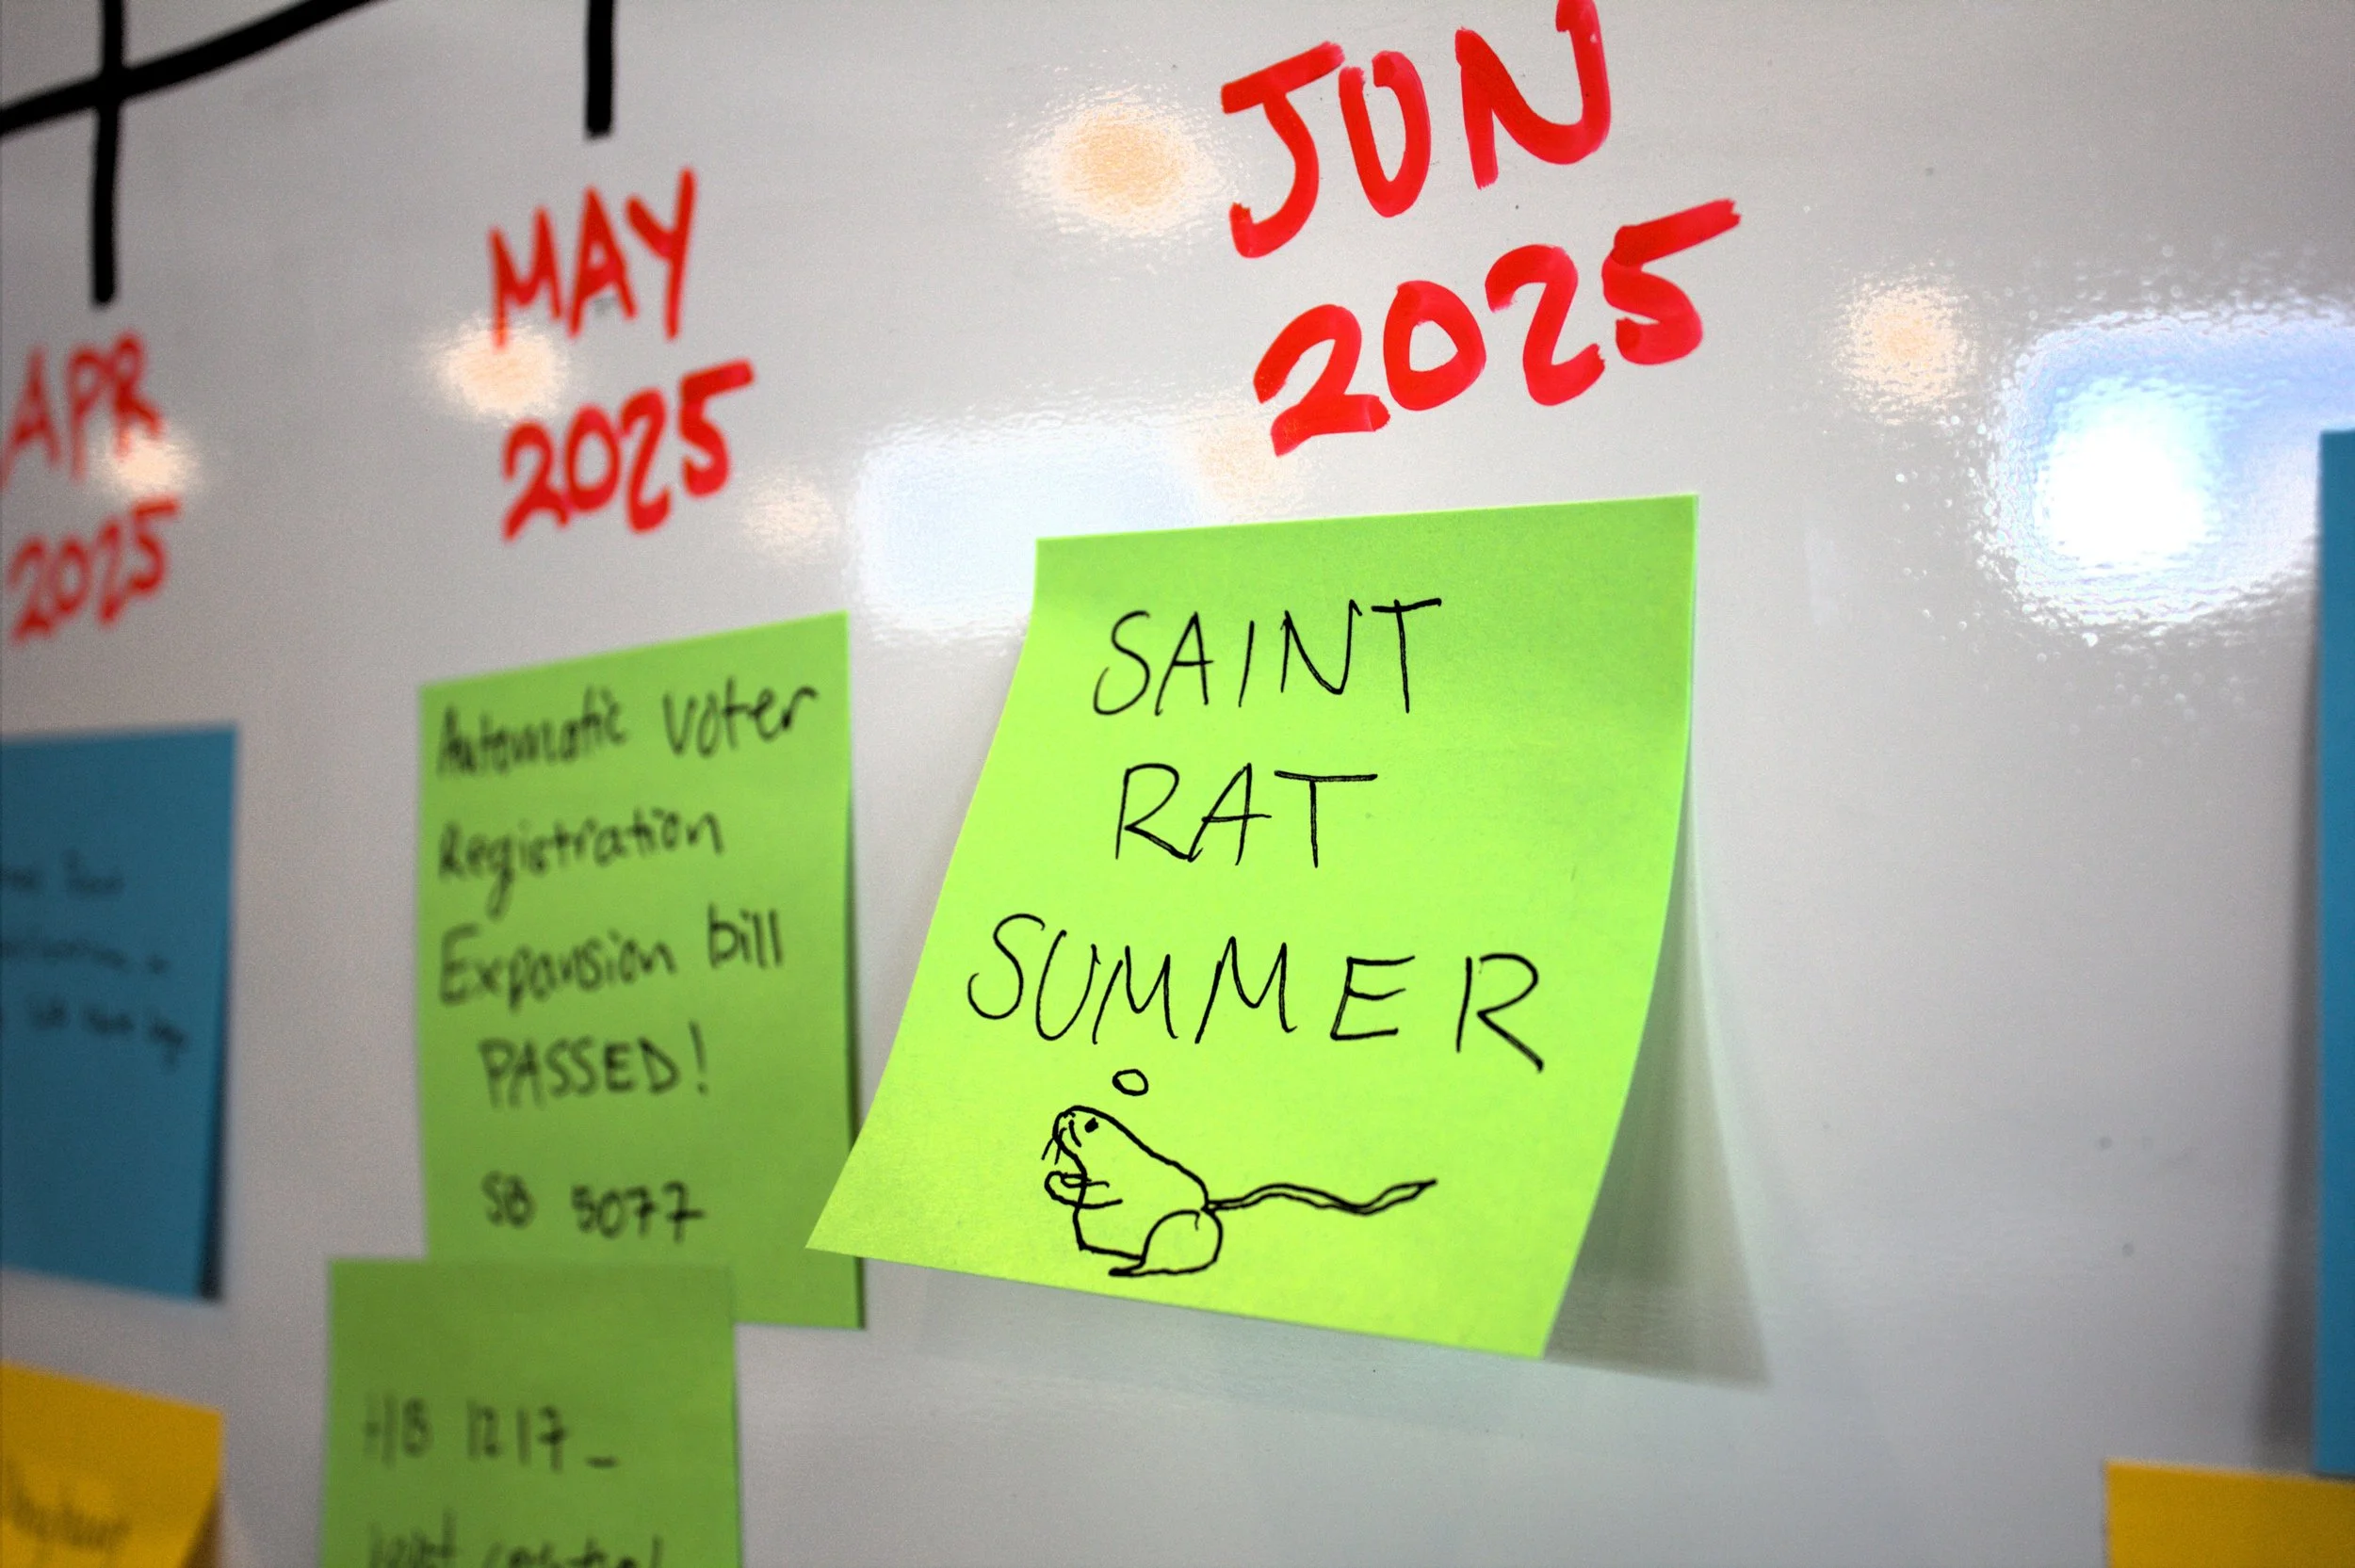 APR
2025
MAY
2025
JUN
2025
Automatic Voter
Registration
Expansion bill
PASSED!
SB 5077
HB 1217
SAINT
RAT
SUMMER